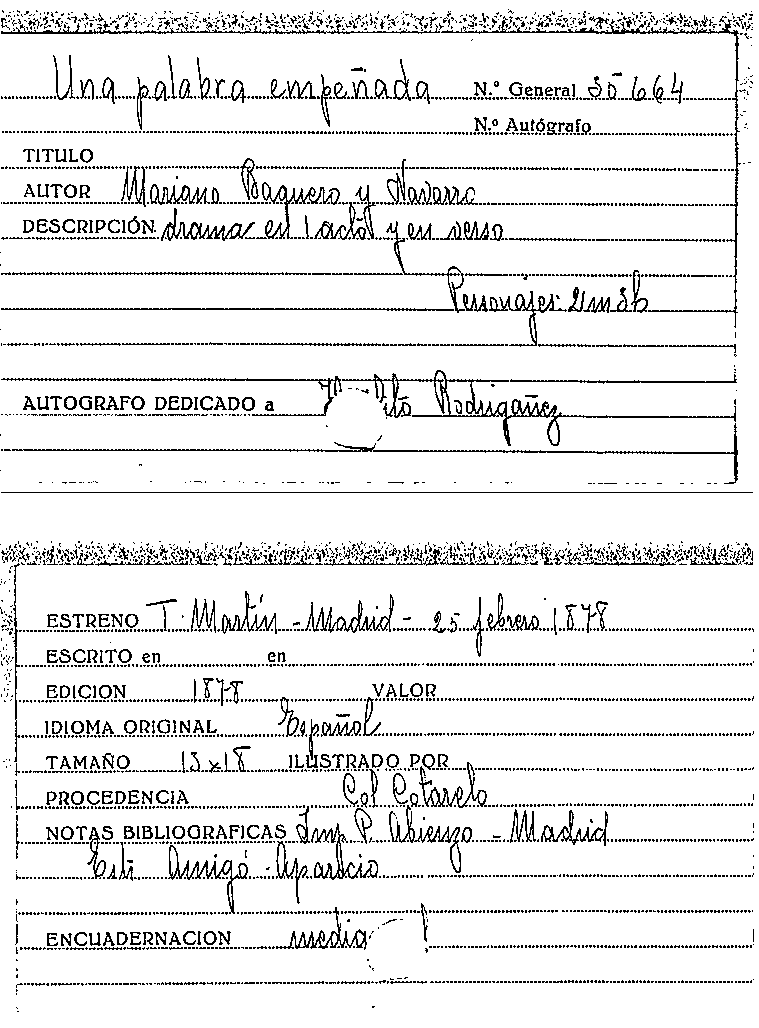 Una palabra empeñada N.º General 35664
N.º Autógrafo
TITULO
AUTOR Mariano Baquero y Navarro
DESCRIPCIÓN drama en 1 acto y en verso
Personajes: 2m3h
AUTOGRAFO DEDICADO a Rodrigañez
ESTRENO T. Martín - Madrid - 25 febrero 1878
ESCRITO en en
EDICION 1878 VALOR
IDIOMA ORIGINAL Español
TAMAÑO 13x18 ILUSTRADO POR
PROCEDENCIA Col Cotarelo
NOTAS BIBLIOGRAFICAS Imp. P. Abienzo - Madrid
Amigó - Aparicio
ENCUADERNACION media